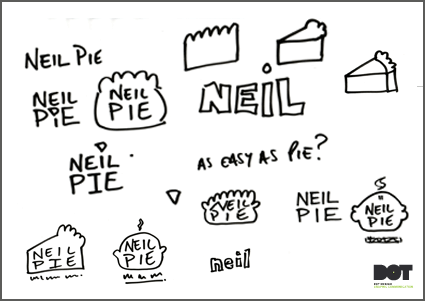 NEIL PIE
NEIL
PIE
NEIL
PIE
NEIL
NEIL
PIE
AS EASY AS PIE?
NEIL
PIE
NEIL
PIE
NEIL
PIE
NEIL
PIE
NEIL
PIE
neil
DOT